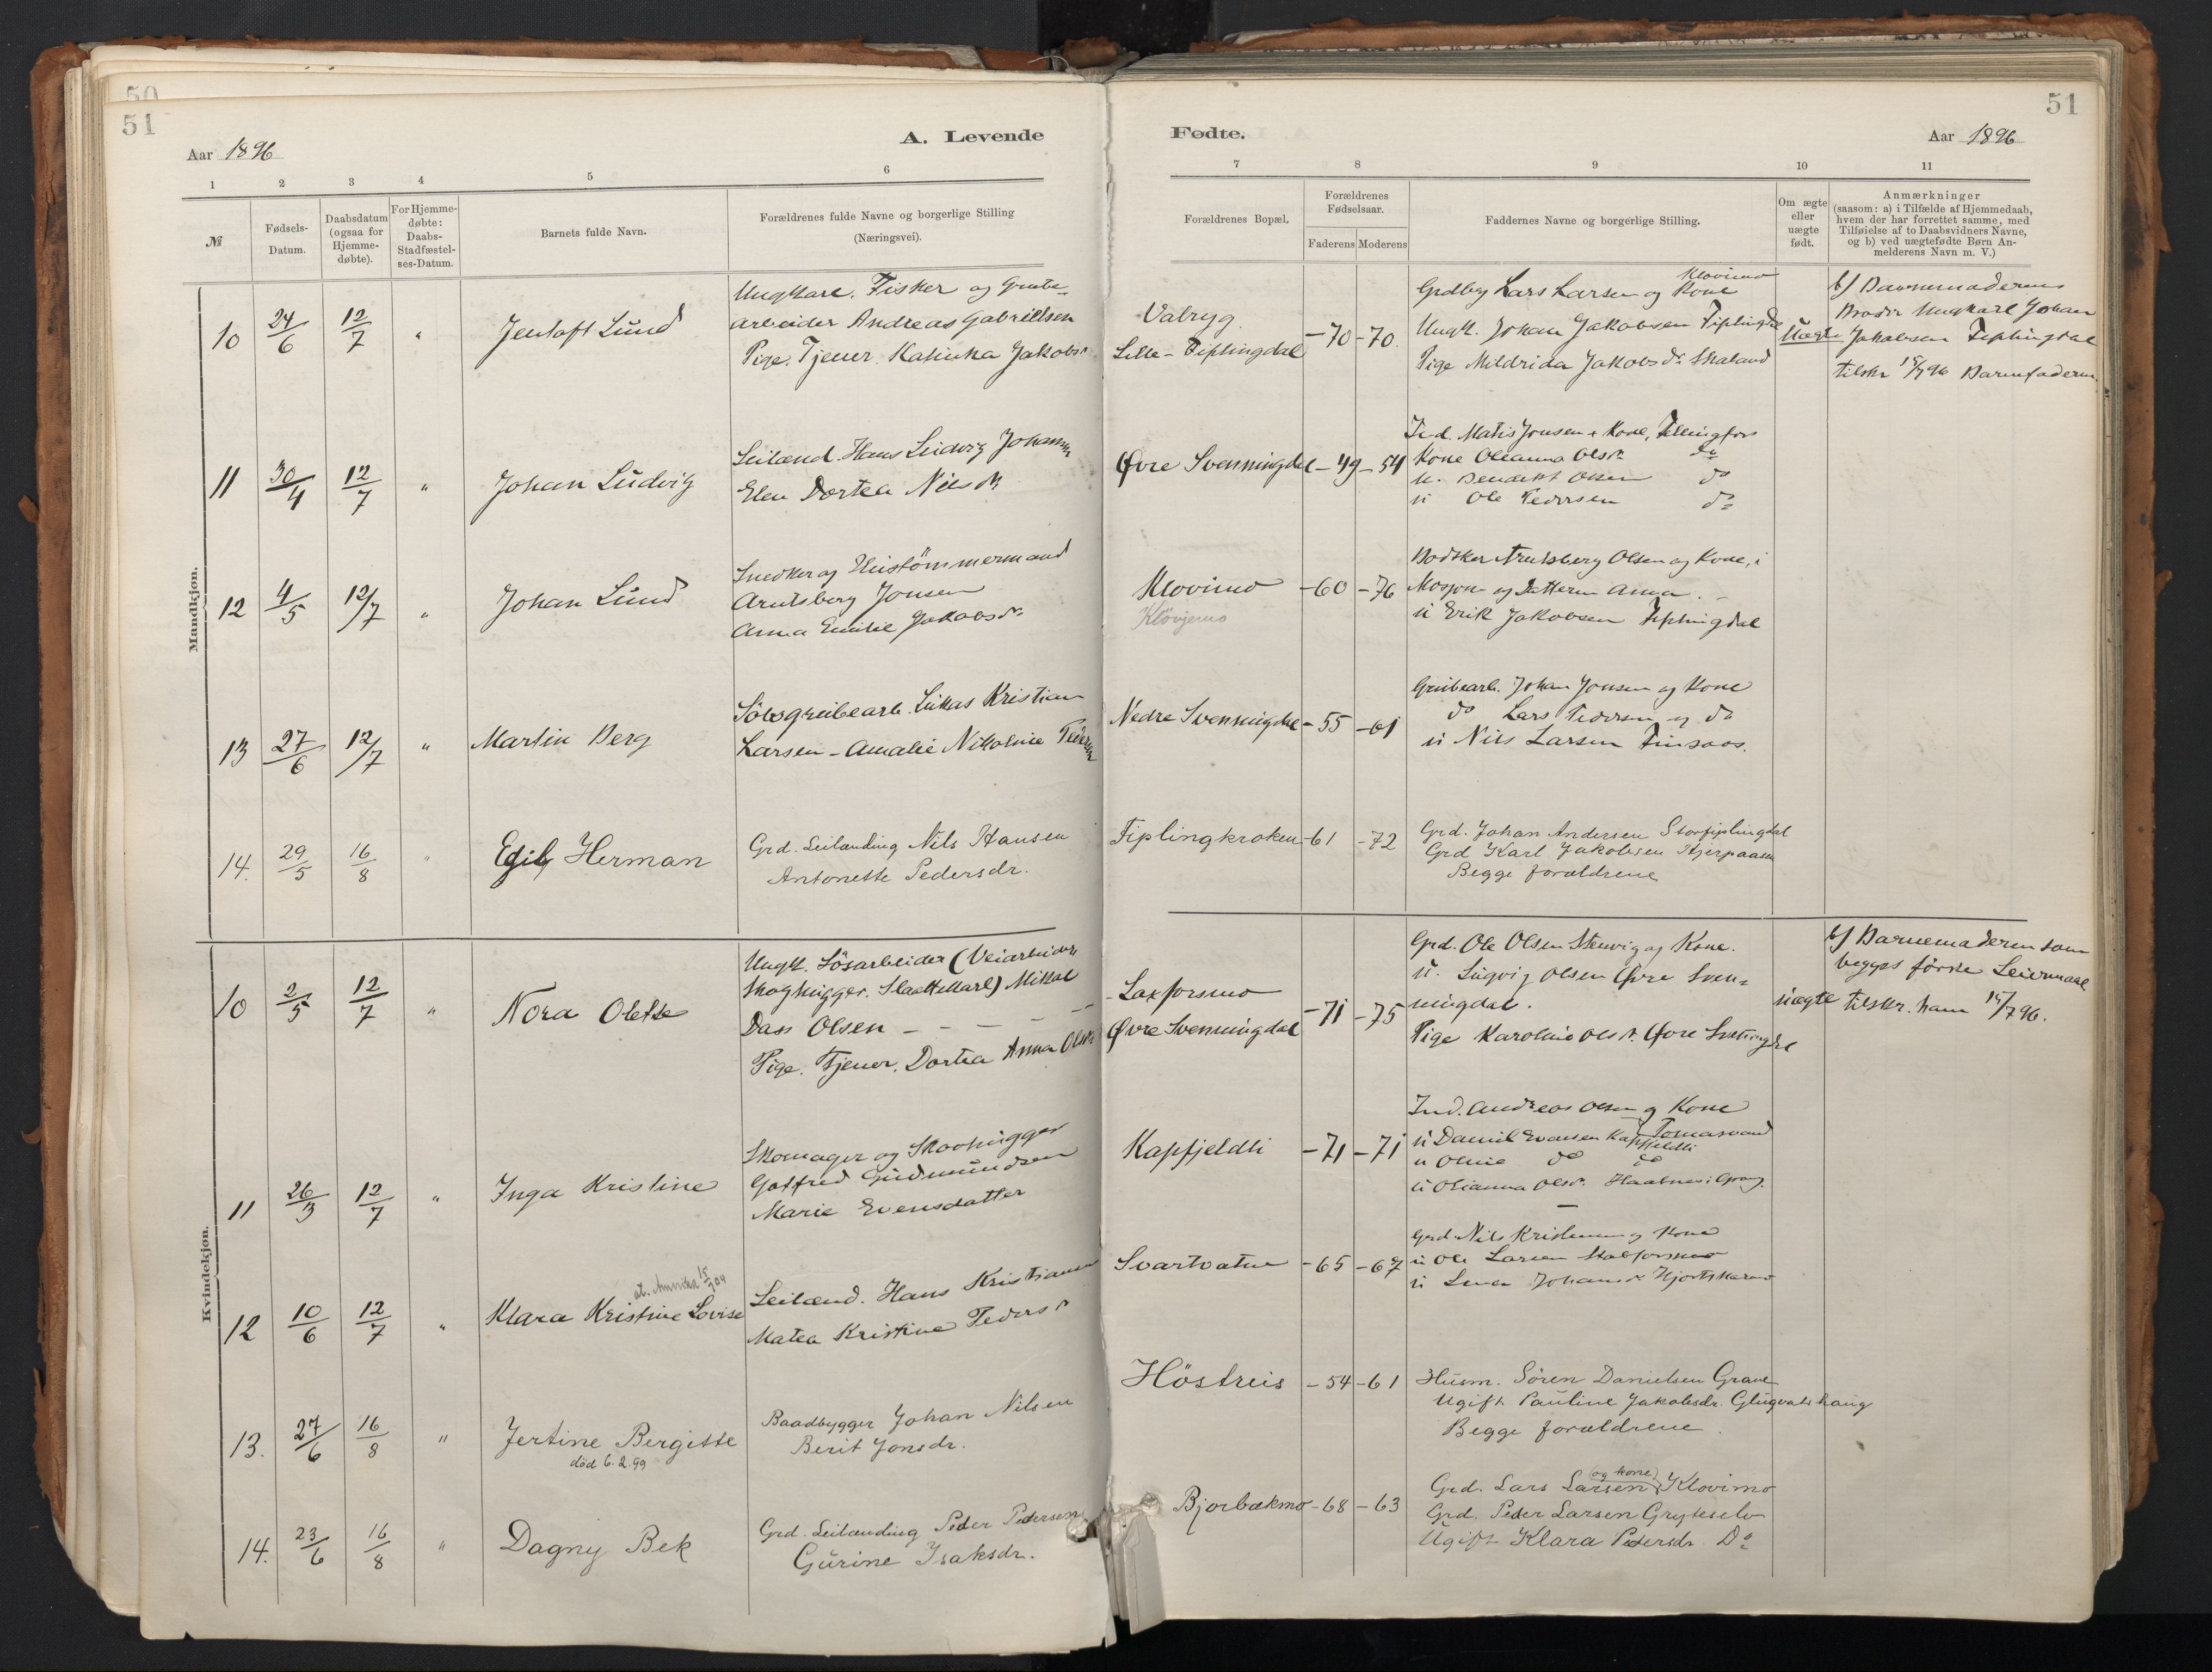 50
51
Aar 1896
A. Levende
1 2 3 4 5 6
№
Fødsels-
Datum.
Daabsdatum
(ogsaa for
Hjemme-
døbte).
For Hjemme-
døbte:
Daabs-
Stadfæstel-
ses-Datum.
Barnets fulde Navn.
Forældrenes fulde Navne og borgerlige Stilling
(Næringsvei).
Mandkjøn.
10 24/6 12/7 " Jentoft Lund
Ungkarl. Fisker og Grube-
arbeider Andreas Gabrielsen
Pige. Tjener. Katinka Jakobsdr
11 30/4 12/7 " Johan Ludvig
Leilænd. Hans Ludvig Johansen
Elen Dortea Nilsdr
12 4/5 12/7 " Johan Lund
Snedker og Hustömmermand
Arntsberg Jonsen
Anna Emilie Jakobsdr
13 27/6 12/7 " Martin Berg
Sölvgrubearb. Lukas Kristian
Larsen - Amalie Nikoline Pedersdr
14. 29/5 16/8 " Egil Herman
Grd. Leilænding Nils Hansen
Antonette Pedersdr.
Kvindekjøn.
10 2/5 12/7 " Nora Olette
Ungk. Lösarbeider (Veiarbeider
Skoghugger. Slaattekarl) Mikal
Dass Olsen - - - - -
Pige. Tjener. Dortea Anna Olsdr
11 26/3 12/7 " Inga Kristine
Skomager og Skovhugger
Gotfred Gudmundsen
Marie Evensdatter
at. Amerika 15/7 04
12 10/6 12/7 " Klara Kristine Lovise
Leilænd. Hans Kristiansen
Matea Kristine Pedersdr
13. 27/6 16/8 " Jertine Bergitte
död 6.2.99
Baadbygger Johan Nilsen
Berit Jonsdr.
14. 23/6 16/8 " Dagny Bek
Grd. Leilænding Peder Pedersen
Gurine Isaksdr.
51
Fødte.
Aar 1896
7 8 9 10 11
Forældrenes Bopæl.
Forældrenes
Fødselsaar.
Faderens Moderens
Faddernes Navne og borgerlige Stilling.
Om ægte
eller
uægte
født.
Anmærkninger
(saasom: a) i Tilfælde af Hjemmedaab,
hvem der har forrettet samme, med
Tilføielse af to Daabsvidners Navne,
og b) ved uægtefødte Børn An-
melderens Navn m. V.)
Valryg
Lille-Fiplingdal -70 -70.
Klovimo
Grdbrg Lars Larsen og Kone
Ungk. Johan Jakobsen Fiplingdal
Pige Mildrida Jakobsdr Skaland
Uægte
b) Barnemoderens
Broder Ungkarl Johan
Jakobsen Fiplingdal
tilskr 15/7 96 Barnefaderen.
Øvre Svenningdal -49 -54
Ind. Matis Jonsen & Kone, Fellingfors
Kone Oleanna Olsdr do
u. Benedikt Olsen do
u Ole Pedersen do
Klovimo -60 -76
Klövjemo
Bödker Arntsberg Olsen og Kone, i
Mosjøen og Datteren Anna. -
u Erik Jakobsen Fiplingdal
Nedre Svenningdal -55 -61
Grubearb. Johan Jonsen og Kone
do Lars Pedersen og do
u Nils Larsen Finsaas.
Fiplingkroken -61 -72
Grd. Johan Andersen Storfiplingdal
Grd Karl Jakobsen Hjerpaasen
Begge forældrene
Laxforsmo
Øvre Svenningdal -71 -75
Grd. Ole Olsen Stenvig og Kone.
u. Ludvig Olsen Øvre Sven-
ningdal.
Pige Karoline Olsdr. Øvre Svenningdal
uægte
b) Barnemoderen som
begges förste Leiermaal
tilskr. ham 15/7 96.
Kapfjeldli -71 -71
Ind. Andreas Olsen og Kone
Tomasvand
u Daniel Evensen Kapfjeldli
u Oline do do
u Olianna Olsdr. Haabnes i Grong.
Svartvatne -65 -67
Grd. Nils Kristensen og Kone
u Ole Larsen Stabforsmo
u Lina Johansdr Hjortskarmo
Höstreis -54 -61
Husm. Sören Danielsen Grane
Ugift Pauline Jakobsdr. Glugvatshaug
Begge forældrene.
Bjorbækmo -68 -63
Grd. Lars Larsen (og kone) Klovimo
Grd. Peder Larsen Gryteselv
Ugift Klara Pedersdr Do